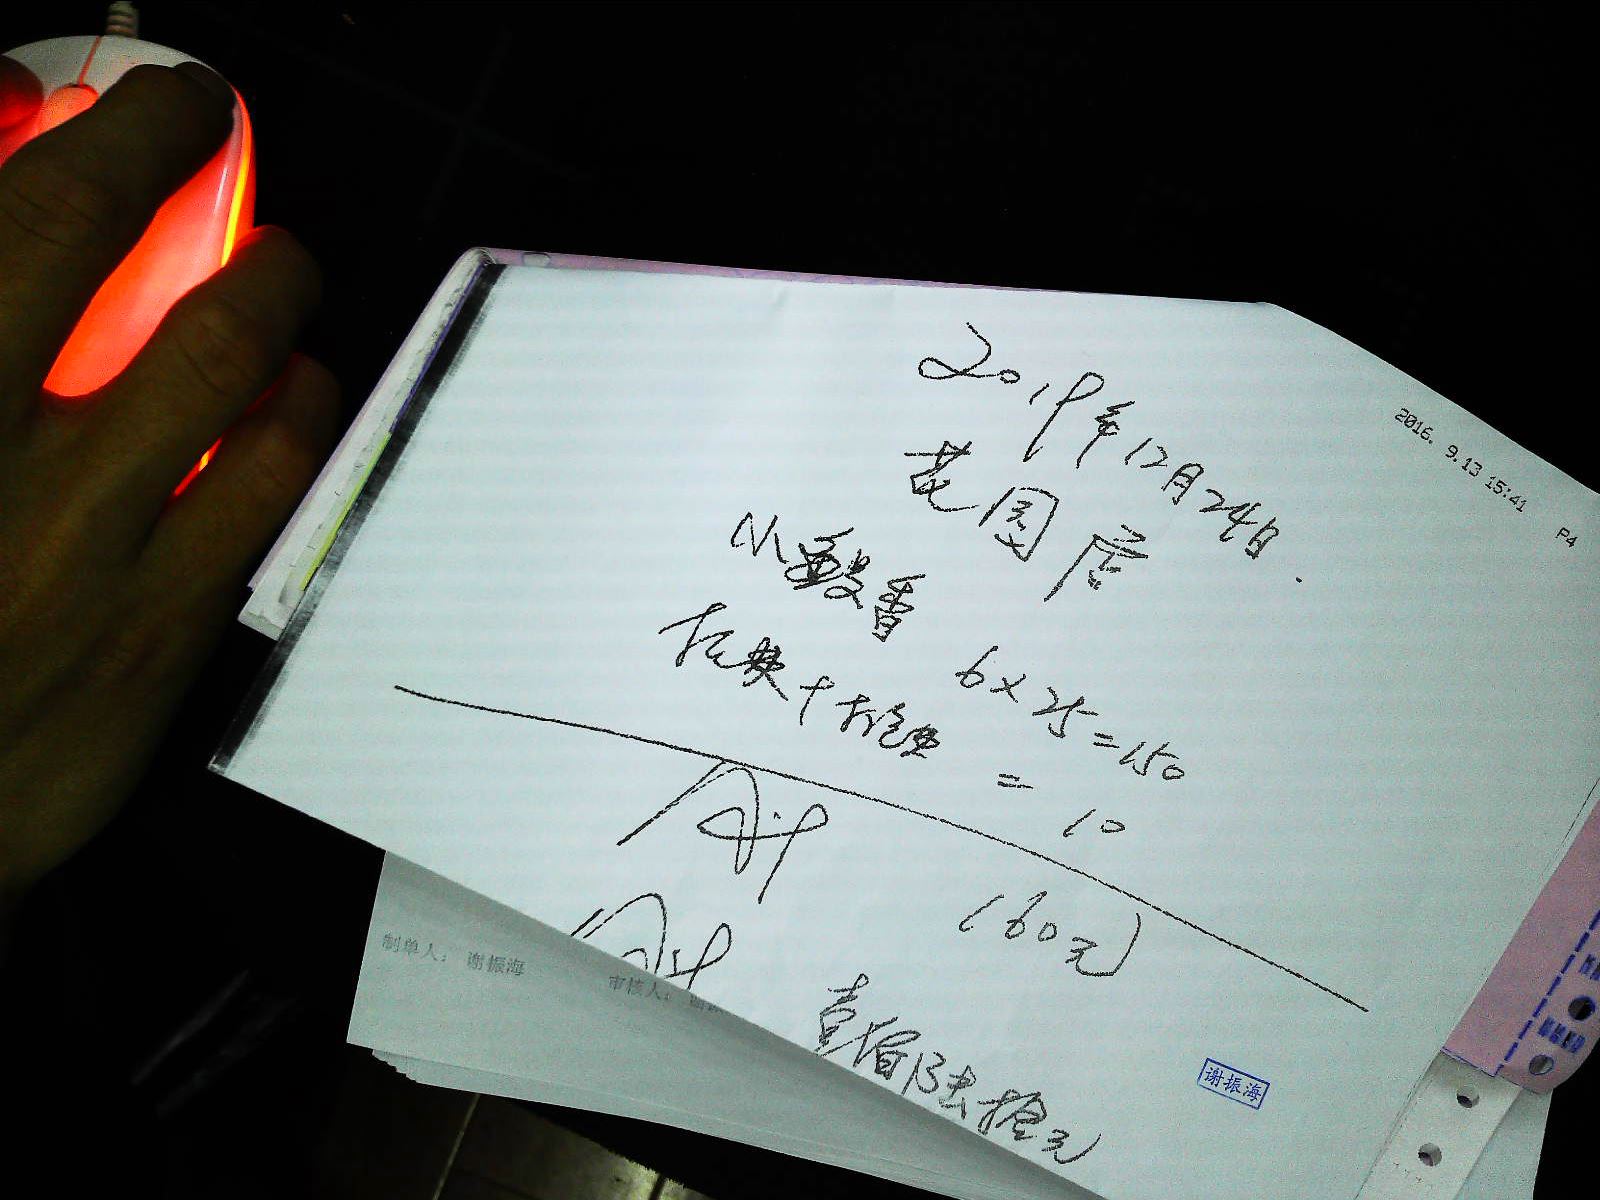 2016. 9.13 15:41 P4
2019年12月24日.
花园店
小 香 6×25=150
 = 10
合计 160元
合计 壹佰陆拾元
谢振海
制单人: 谢振海 审核人: